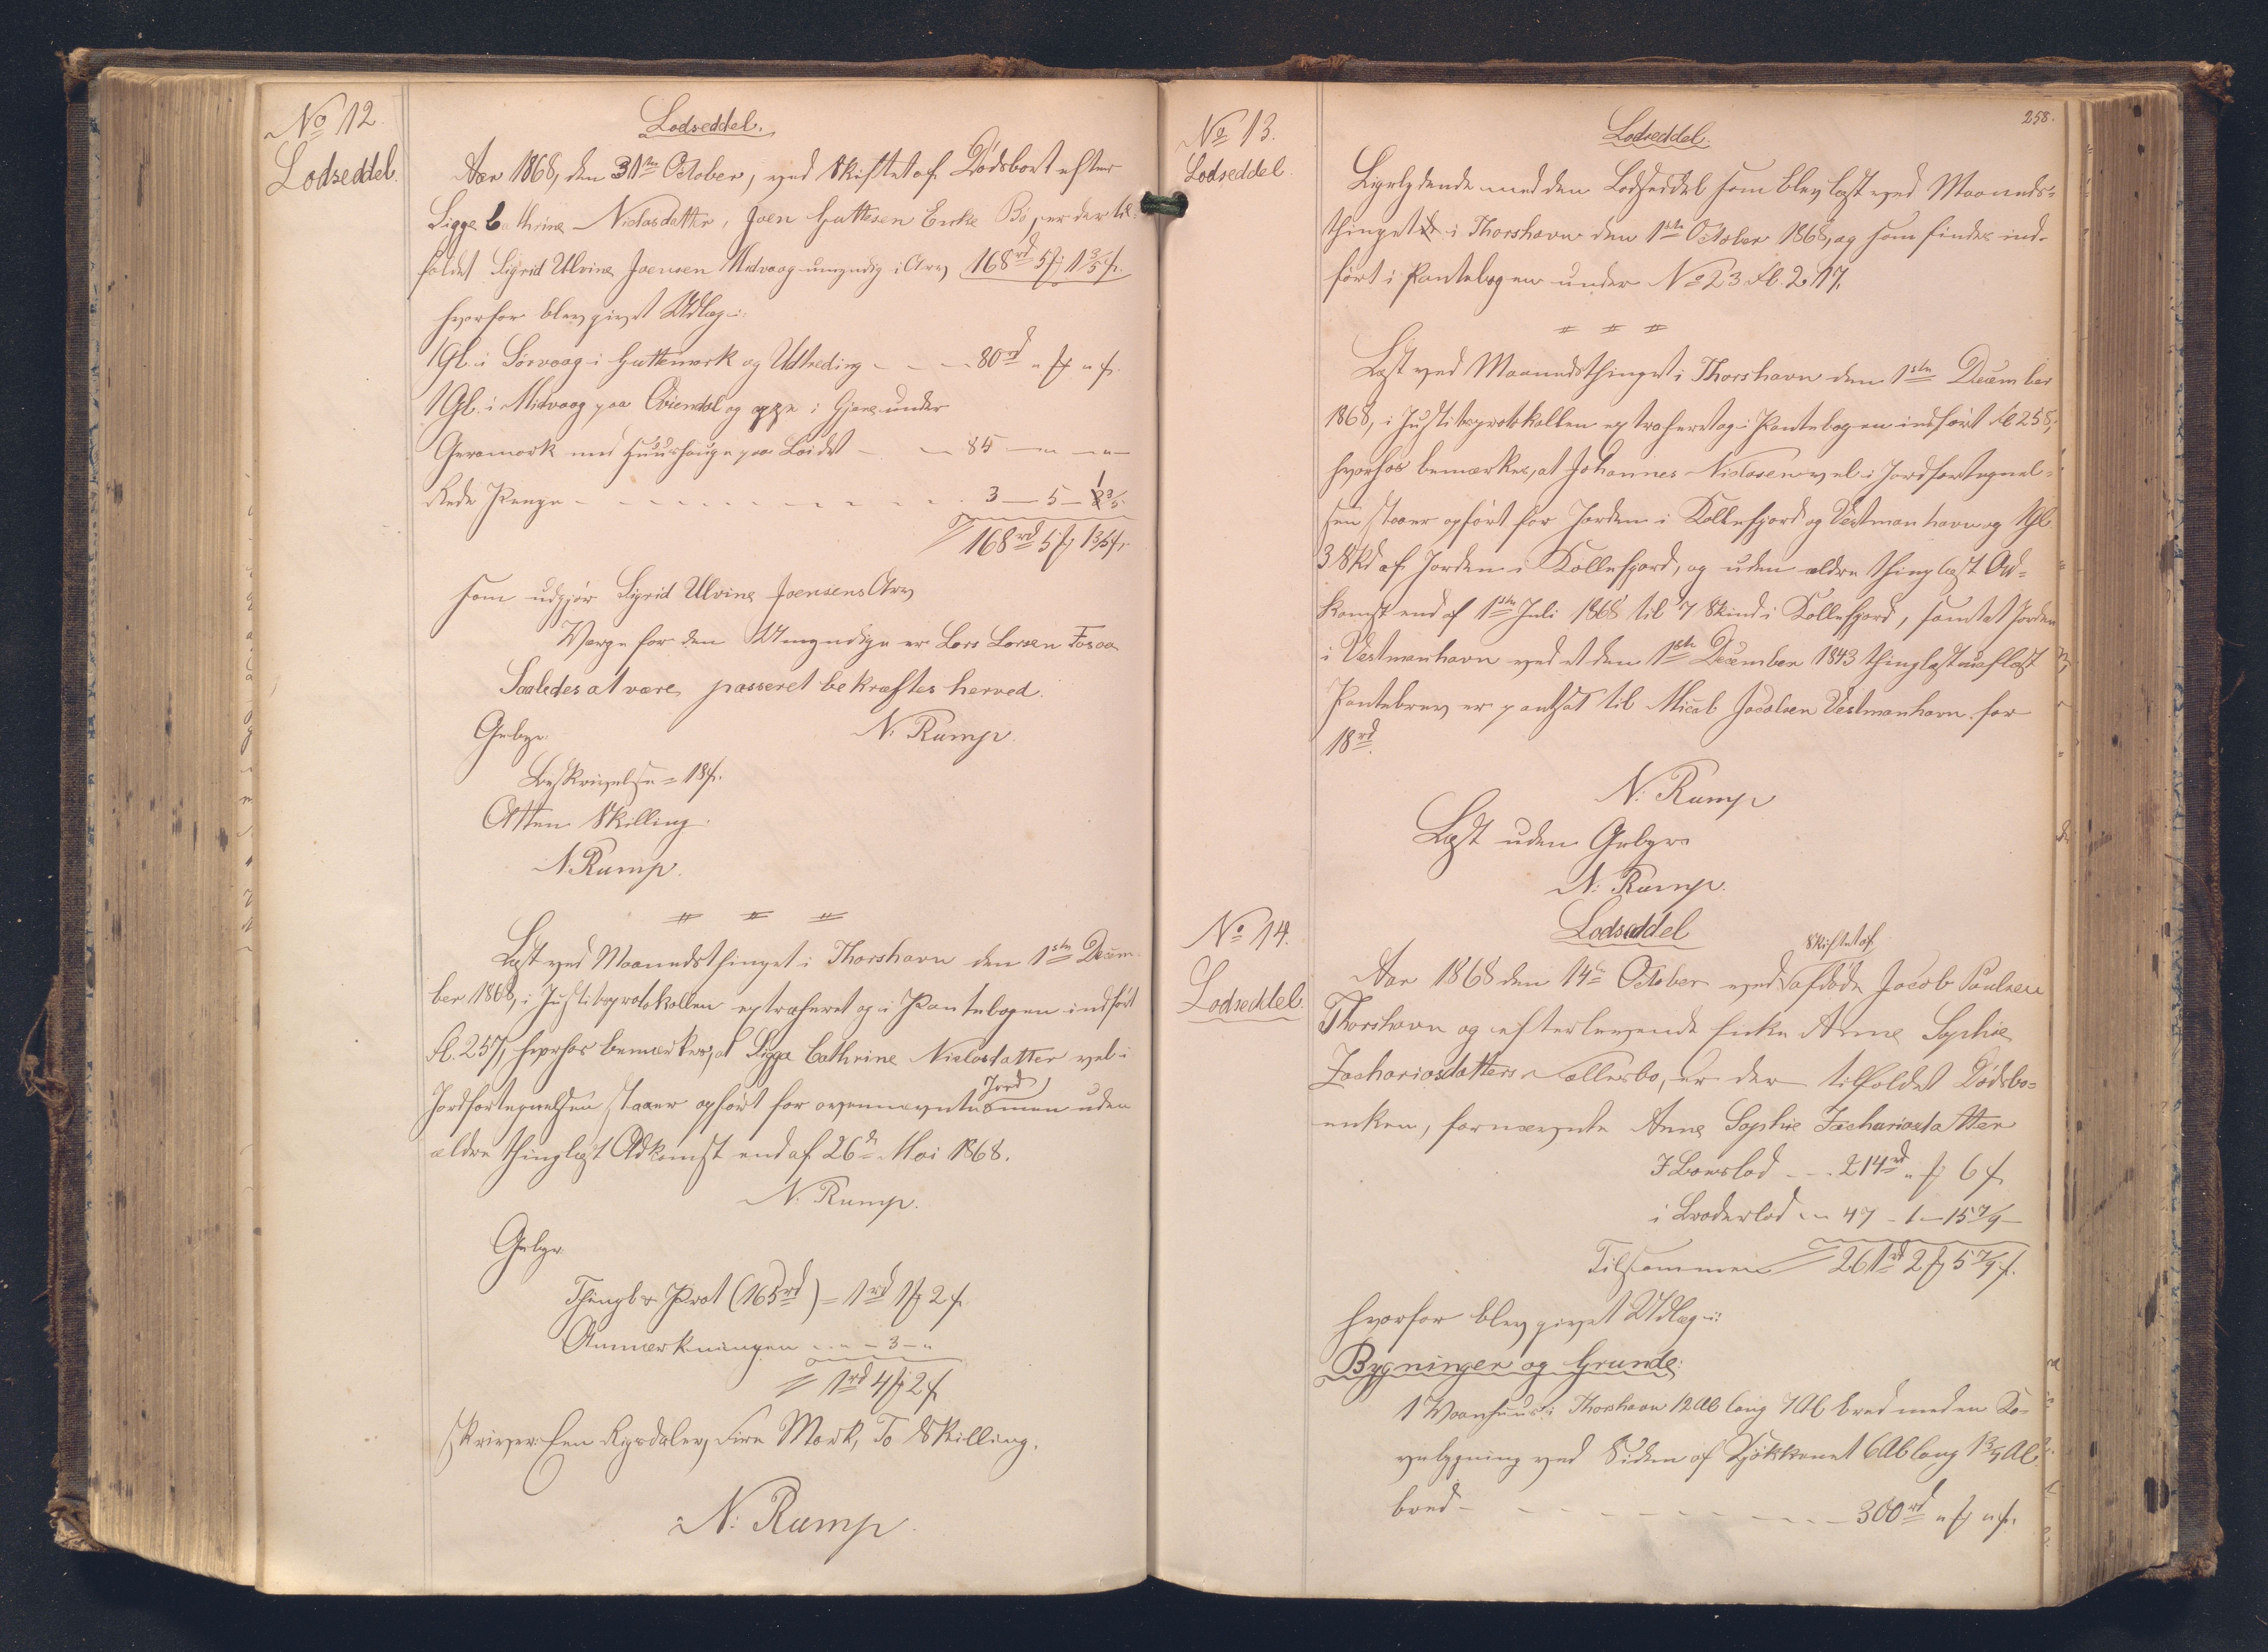 No 12.
Lodseddel.
Lodseddel.
Aar 1868, den 31te October, ved Skiftet af Dødsboet efter
Sigga Cathrine Niclasdatter, Joen Guttesen Enke Bø, er der til-
faldet Sigrid Ulvine Joensen Midvaag umyndig i Arv 168rd 5 1 3/5
hvorfor blev givet Udlæg i:
1 Gl. i Sørvaag i Guttemork og Udtreding - - - 80rd " "
1 Gl. i Midvaag paa Qviendal og oppe i Gjære under
Geramork med Huushauge paa Loidet - - 85 - " - "
Rede Penge - - - - - - - 3 - 5 - 1 3/5
168rd 5 1 3/5
som udgjør Sigrid Ulvine Joensens Arv
Værge for den Umyndige er Lars Larsen Fosaa
Saaledes at være passeret bekræftes herved.
Gebyr N. Rump.
Beskrivelse = 18
Atten Skilling.
N. Rump.
Læst ved Maanedsthinget i Thorshavn den 1ste Decem-
ber 1868, i Justitsprotokollen extraheret og i Pantebogen indført
fl. 257, hvorhos bemærkes, at Sigga Cathrine Niclasdatter vel i
Jordfortegnelsen staaer opført for ovennævnte Jord men uden
ældre thinglæst Adkomst end af 26de Mai 1868.
N. Rump.
Gebyr
Thingl & Prot (165rd) = 1rd 1 2
Anmærkningen " - 3 - "
1rd 4 2
skriver Een Rigsdaler, Fire Mark, To Skilling.
N. Rump
258.
No 13.
Lodseddel
Lodseddel.
Ligelydende med den Lodseddel som blev læst ved Maaneds-
thinget i Thorshavn den 1ste October 1868, og som findes ind-
ført i Pantebogen under No 23 fl. 217.
Læst ved Maanedsthinget i Thorshavn den 1ste December
1868, i Justitsprotokollen extraheret og i Pantebogen indført fl 258,
hvorhos bemærkes, at Johannes Niclasen vel i Jordfortegnel-
sen staaer opført for Jorden i Kollefjord og Vestmanhavn og 1 Gl
3 Skd af Jorden i Kollefjord, og uden ældre thinglæst Ad-
komst end af 1ste Juli 1868 til 7 Skind i Kollefjord, samt at Jorden
i Vestmanhavn ved et den 1ste December 1843 thinglæst uaflæst
Pantebrev er pantsat til Micael Jacobsen Vestmanhavn for
18rd.
N. Rump
Læst uden Gebyr
N. Rump.
No 14.
Lodseddel
Lodseddel
Aar 1868 den 14de October ved Skiftet af afdøde Jacob Poulsen
Thorshavn og efterlevende Enke Anne Sophie
Zachariasdatters Fællesbo, er der tilfaldet Dødsbo-
enken, fornævnte Anne Sophie Zachariasdatter
I Boeslod - - 214rd " 6
i Broderlod " 47 - 1 - 15 7/9 -
Tilsammen 261rd 2 5 7/9
hvorfor blev givet Udlæg i:
Bygninger og Grunde:
1 Vaanhuus i Thorshavn 12 Al lang 7 Al bred med en To-
vebygning ved Siden af Kjøkkenet 6 Al lang 1 3/4 Al
bred - - - - - - - - 300rd " "